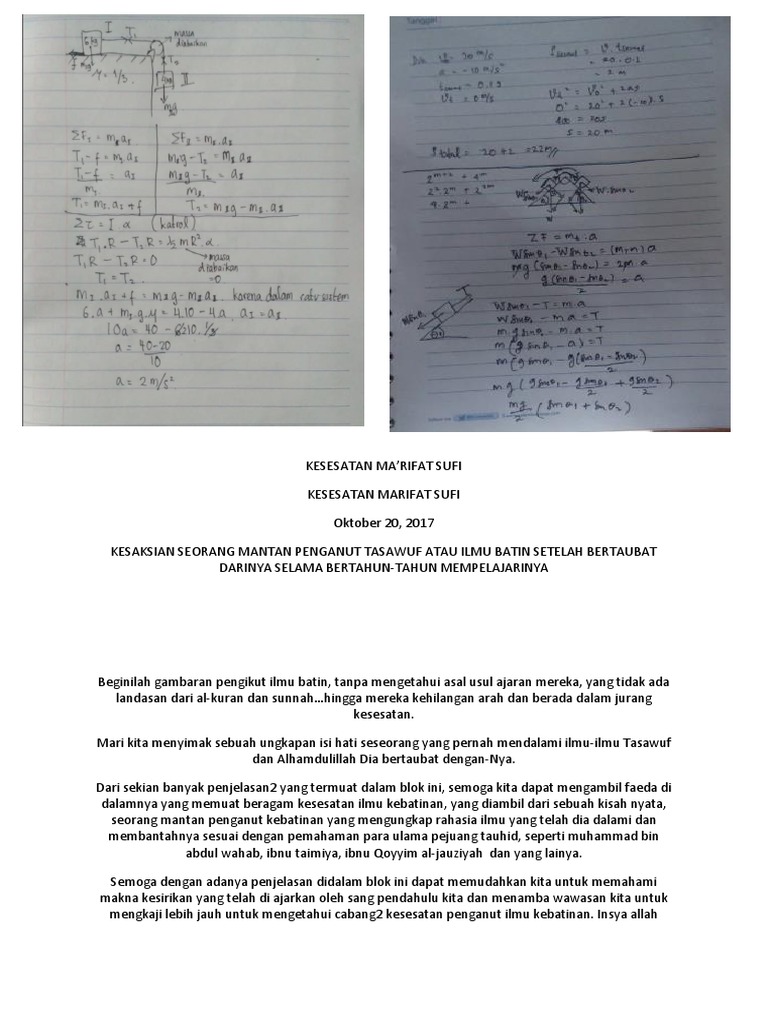 I
T₁
massa
diabaikan
6 kg
μ = 1/3
T₂
II
m₂g
ΣF₁ = m₁.a₁
T₁ - f = m₁.a₁
T₁ - f = a₁
m₁
T₁ = m₁.a₁ + f
ΣF₂ = m₂.a₂
m₂g - T₂ = m₂.a₂
m₂g - T₂ = a₂
m₂
T₂ = m₂g - m₂.a₂
Στ = I . α (katrol)
T₁.R - T₂R = 1/2 mR².α
T₁R - T₂R = 0
massa
diabaikan
=0
T₁ = T₂
m₁.a₁ + f = m₂g - m₂a₂ karena dalam satu sistem
6.a + m₁.g.μ = 4.10 - 4a, a₁ = a₂
10a = 40 -
a = 40-20
10
a = 2 m/s²
Tanggal:
a = -10 m/s²
= 0 m/s
= 20 . 0.1
= 2 m
= V₀² + 2as
0² = 20² + 2(-10).s
400 = 20s
s = 20 m
S total = 20 + 2 = 22
2^(m+2) + 4^m
2².2^m + 2^(2m)
4.2^m +
Wsinθ₁
W.sinθ₂
ΣF = m.a
Wsinθ₁ - Wsinθ₂ = (m+m) a
mg (sinθ₁ - sinθ₂) = 2m.a
g (sinθ₁ - sinθ₂) = a
2
T
Wsinθ₁
Wsinθ₁ - T = m.a
Wsinθ₁ - m.a = T
m.g sinθ₁ - m.a = T
m (g sinθ₁ - a) = T
m (g sinθ₁ - g(sinθ₁ - sinθ₂)
2
mg (g sinθ₁ - g sinθ₁ + g sinθ₂)
2 2
mg (sinθ₁ + sinθ₂)
2
KESESATAN MA’RIFAT SUFI
KESESATAN MARIFAT SUFI
Oktober 20, 2017
KESAKSIAN SEORANG MANTAN PENGANUT TASAWUF ATAU ILMU BATIN SETELAH BERTAUBAT
DARINYA SELAMA BERTAHUN-TAHUN MEMPELAJARINYA
Beginilah gambaran pengikut ilmu batin, tanpa mengetahui asal usul ajaran mereka, yang tidak ada
landasan dari al-kuran dan sunnah…hingga mereka kehilangan arah dan berada dalam jurang
kesesatan.
Mari kita menyimak sebuah ungkapan isi hati seseorang yang pernah mendalami ilmu-ilmu Tasawuf
dan Alhamdulillah Dia bertaubat dengan-Nya.
Dari sekian banyak penjelasan2 yang termuat dalam blok ini, semoga kita dapat mengambil faeda di
dalamnya yang memuat beragam kesesatan ilmu kebatinan, yang diambil dari sebuah kisah nyata,
seorang mantan penganut kebatinan yang mengungkap rahasia ilmu yang telah dia dalami dan
membantahnya sesuai dengan pemahaman para ulama pejuang tauhid, seperti muhammad bin
abdul wahab, ibnu taimiya, ibnu Qoyyim al-jauziyah dan yang lainya.
Semoga dengan adanya penjelasan didalam blok ini dapat memudahkan kita untuk memahami
makna kesirikan yang telah di ajarkan oleh sang pendahulu kita dan menamba wawasan kita untuk
mengkaji lebih jauh untuk mengetahui cabang2 kesesatan penganut ilmu kebatinan. Insya allah